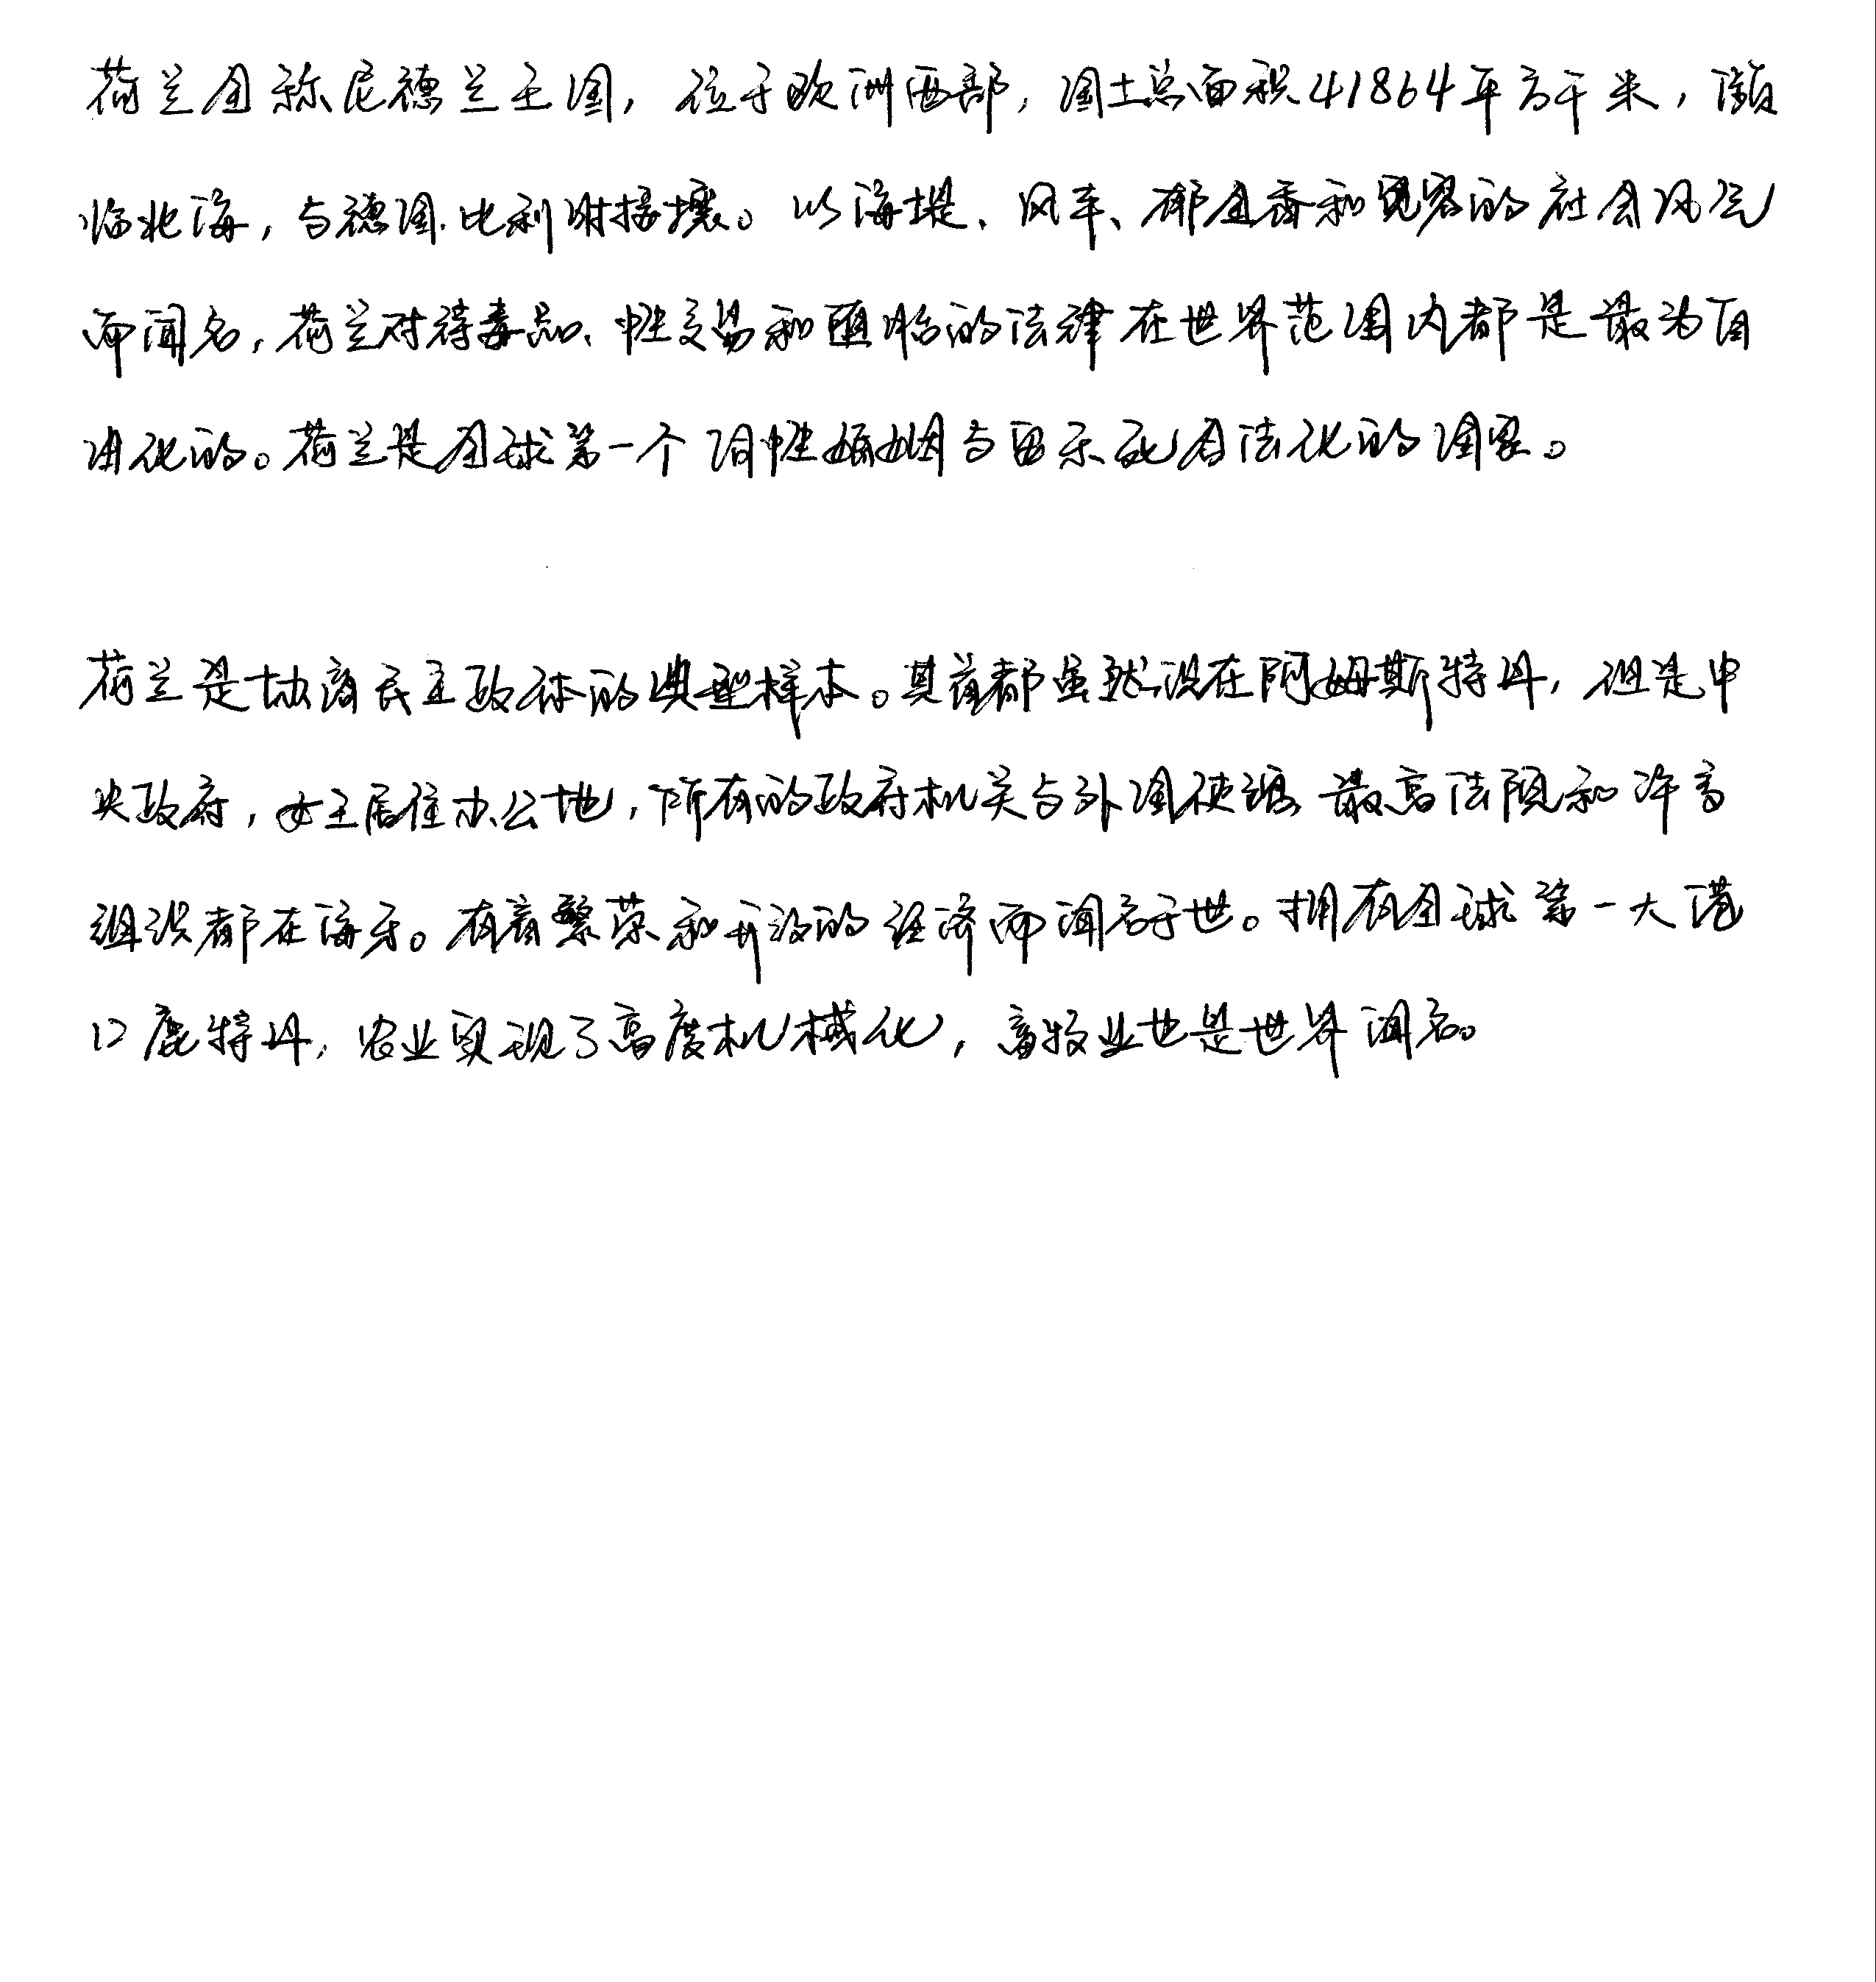 荷兰全称尼德兰王国，位于欧洲西部，国土总面积41864平方千米，濒
临北海，与德国、比利时接壤。以海堤、风车、郁金香和宽容的社会风气
而闻名，荷兰对待毒品、性交易和堕胎的法律在世界范围内都是最为自
由化的。荷兰是全球第一个同性婚姻与安乐死合法化的国家。
荷兰是协商民主政体的典型样本。其首都虽然设在阿姆斯特丹，但是中
央政府，女王居住办公地，所有的政府机关与外国使馆、最高法院和许多
组织都在海牙。有着繁荣和开放的经济而闻名于世。拥有全球第一大港
口鹿特丹，农业实现了高度机械化，畜牧业也是世界闻名。